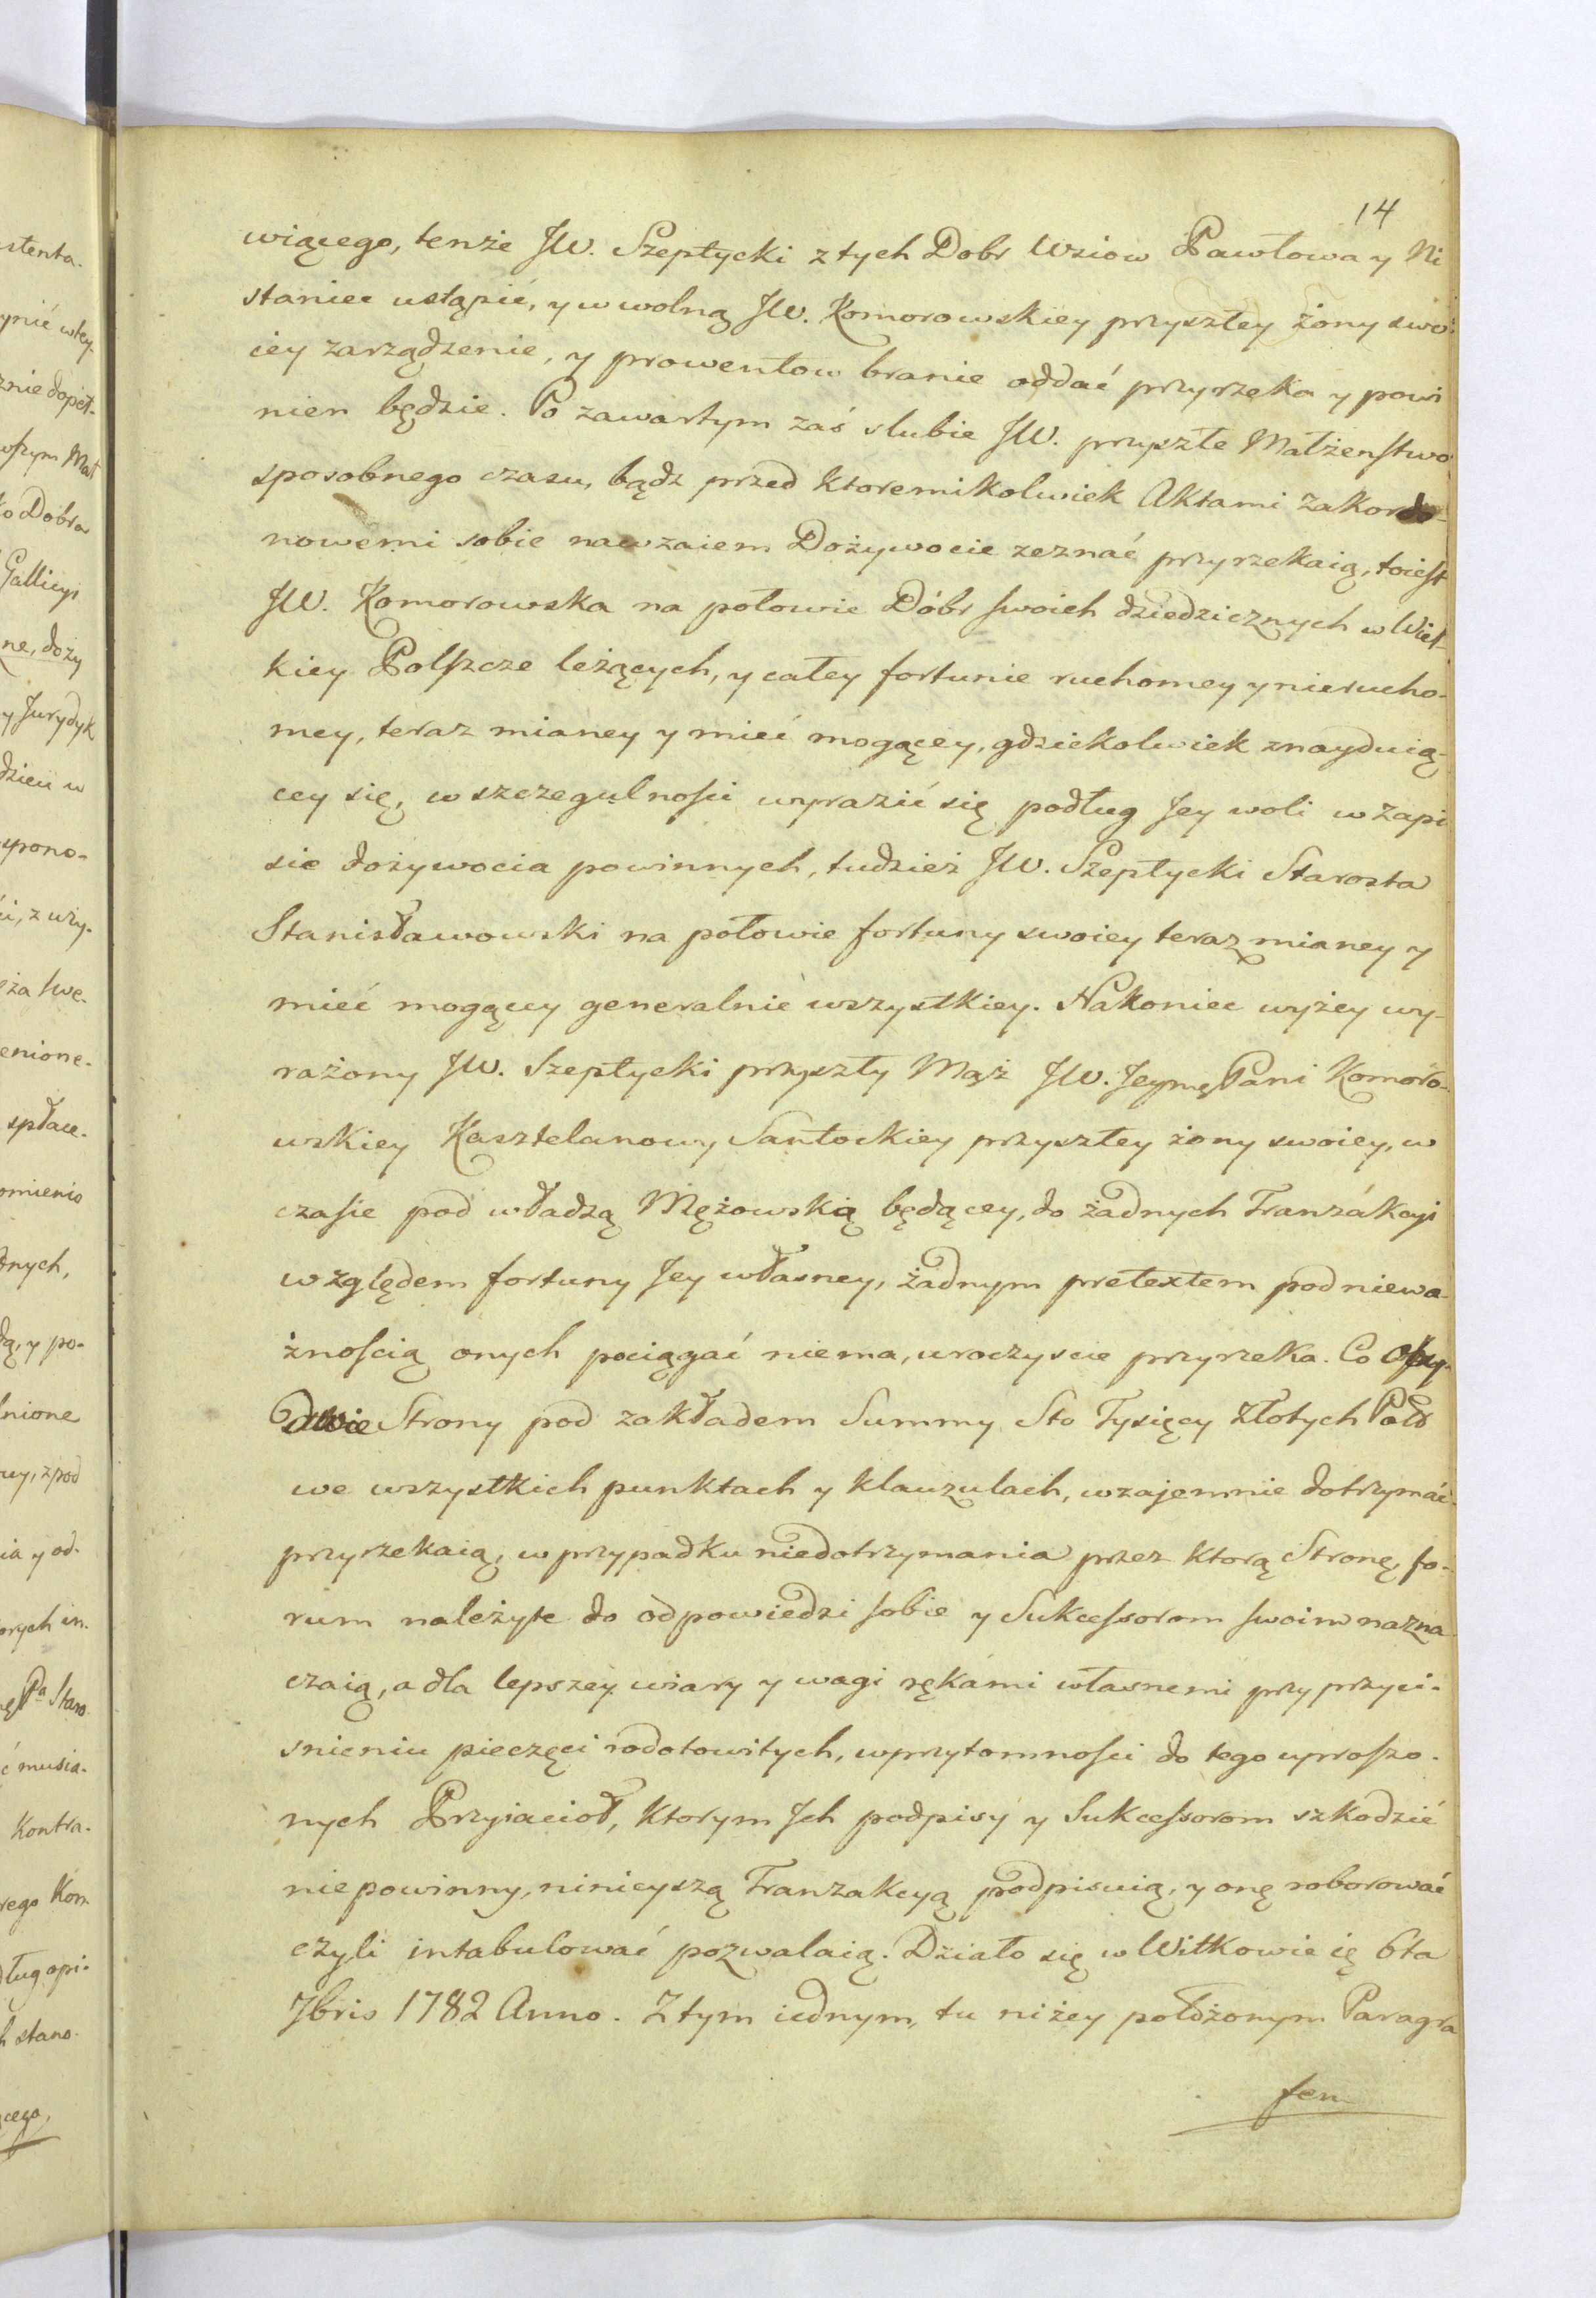 14
wiącego, tenże JW. Szeptycki z tych Dobr Wsiow Pawłowa y Ni
staniec ustąpić, y w wolną JW. Komorowskiey przyszłey żony swo-
iey zarządzenie, y prowentow branie oddać przyrzeka y powi
nien będzie. Po zawartym zaś slubie JW. przyszłe Małżenstwo
sposobnego czasu, bądź przed ktoremikolwiek Aktami zakordo-
nowemi sobie nawzaiem Dożywocie zeznać przyrzekaią, toiest
JW. Komorowska na połowie Dóbr swoich dziedzicznych w Wiel-
kiey Polszcze leżących, y całey fortunie ruchomey y nierucho-
mey, teraz mianey y mieć mogącey, gdziekolwiek znayduią-
cey się, w szczegulności wyrazić się podług Jey woli w zapi
sie dożywocia powinnych, tudzież JW. Szeptycki Starosta
Stanisławowski na połowie fortuny swoiey teraz mianey y
mieć mogącey generalnie wszystkiey. Nakoniec wyżey wy-
rażony JW. Szeptycki przyszły Mąż JW. Jeymę Pani Komoro-
wskiey Kasztelanowy Santockiey przyszłey żony swoiey, w
czasie pod władzą Mężowską będącey, do żadnych Tranzákcyi
względem fortuny Jey własney, żadnym pretextem pod niewa-
żnością onych pociągać niema, uroczyscie przyrzeka. Co oby-
dwie Strony pod zakładem Summy Sto Tysięcy Złotych Pols
we wszystkich punktach y klauzulach, wzajemnie dotrzymać
przyrzekaią, w przypadku niedotrzymania przez ktorą Stronę, fo-
rum należyte do odpowiedzi sobie y Sukcessorom swoim nazna
czaią, a dla lepszey wiary y wagi rękami własnemi przy przyci-
snieniu pieczęci rodowitych, w przytomności do tego uproszo-
nych Przyiacioł, ktorym Jch podpisy y Sukcessorom szkodzić
niepowinny, ninieyszą Tranzakcyą podpisuią, y onę roborować
czyli intabulować pozwalaią. Działo się w Witkowie 6ta
7bris 1782 Anno. Z tym iednym, tu niżey położonym Paragra
fem